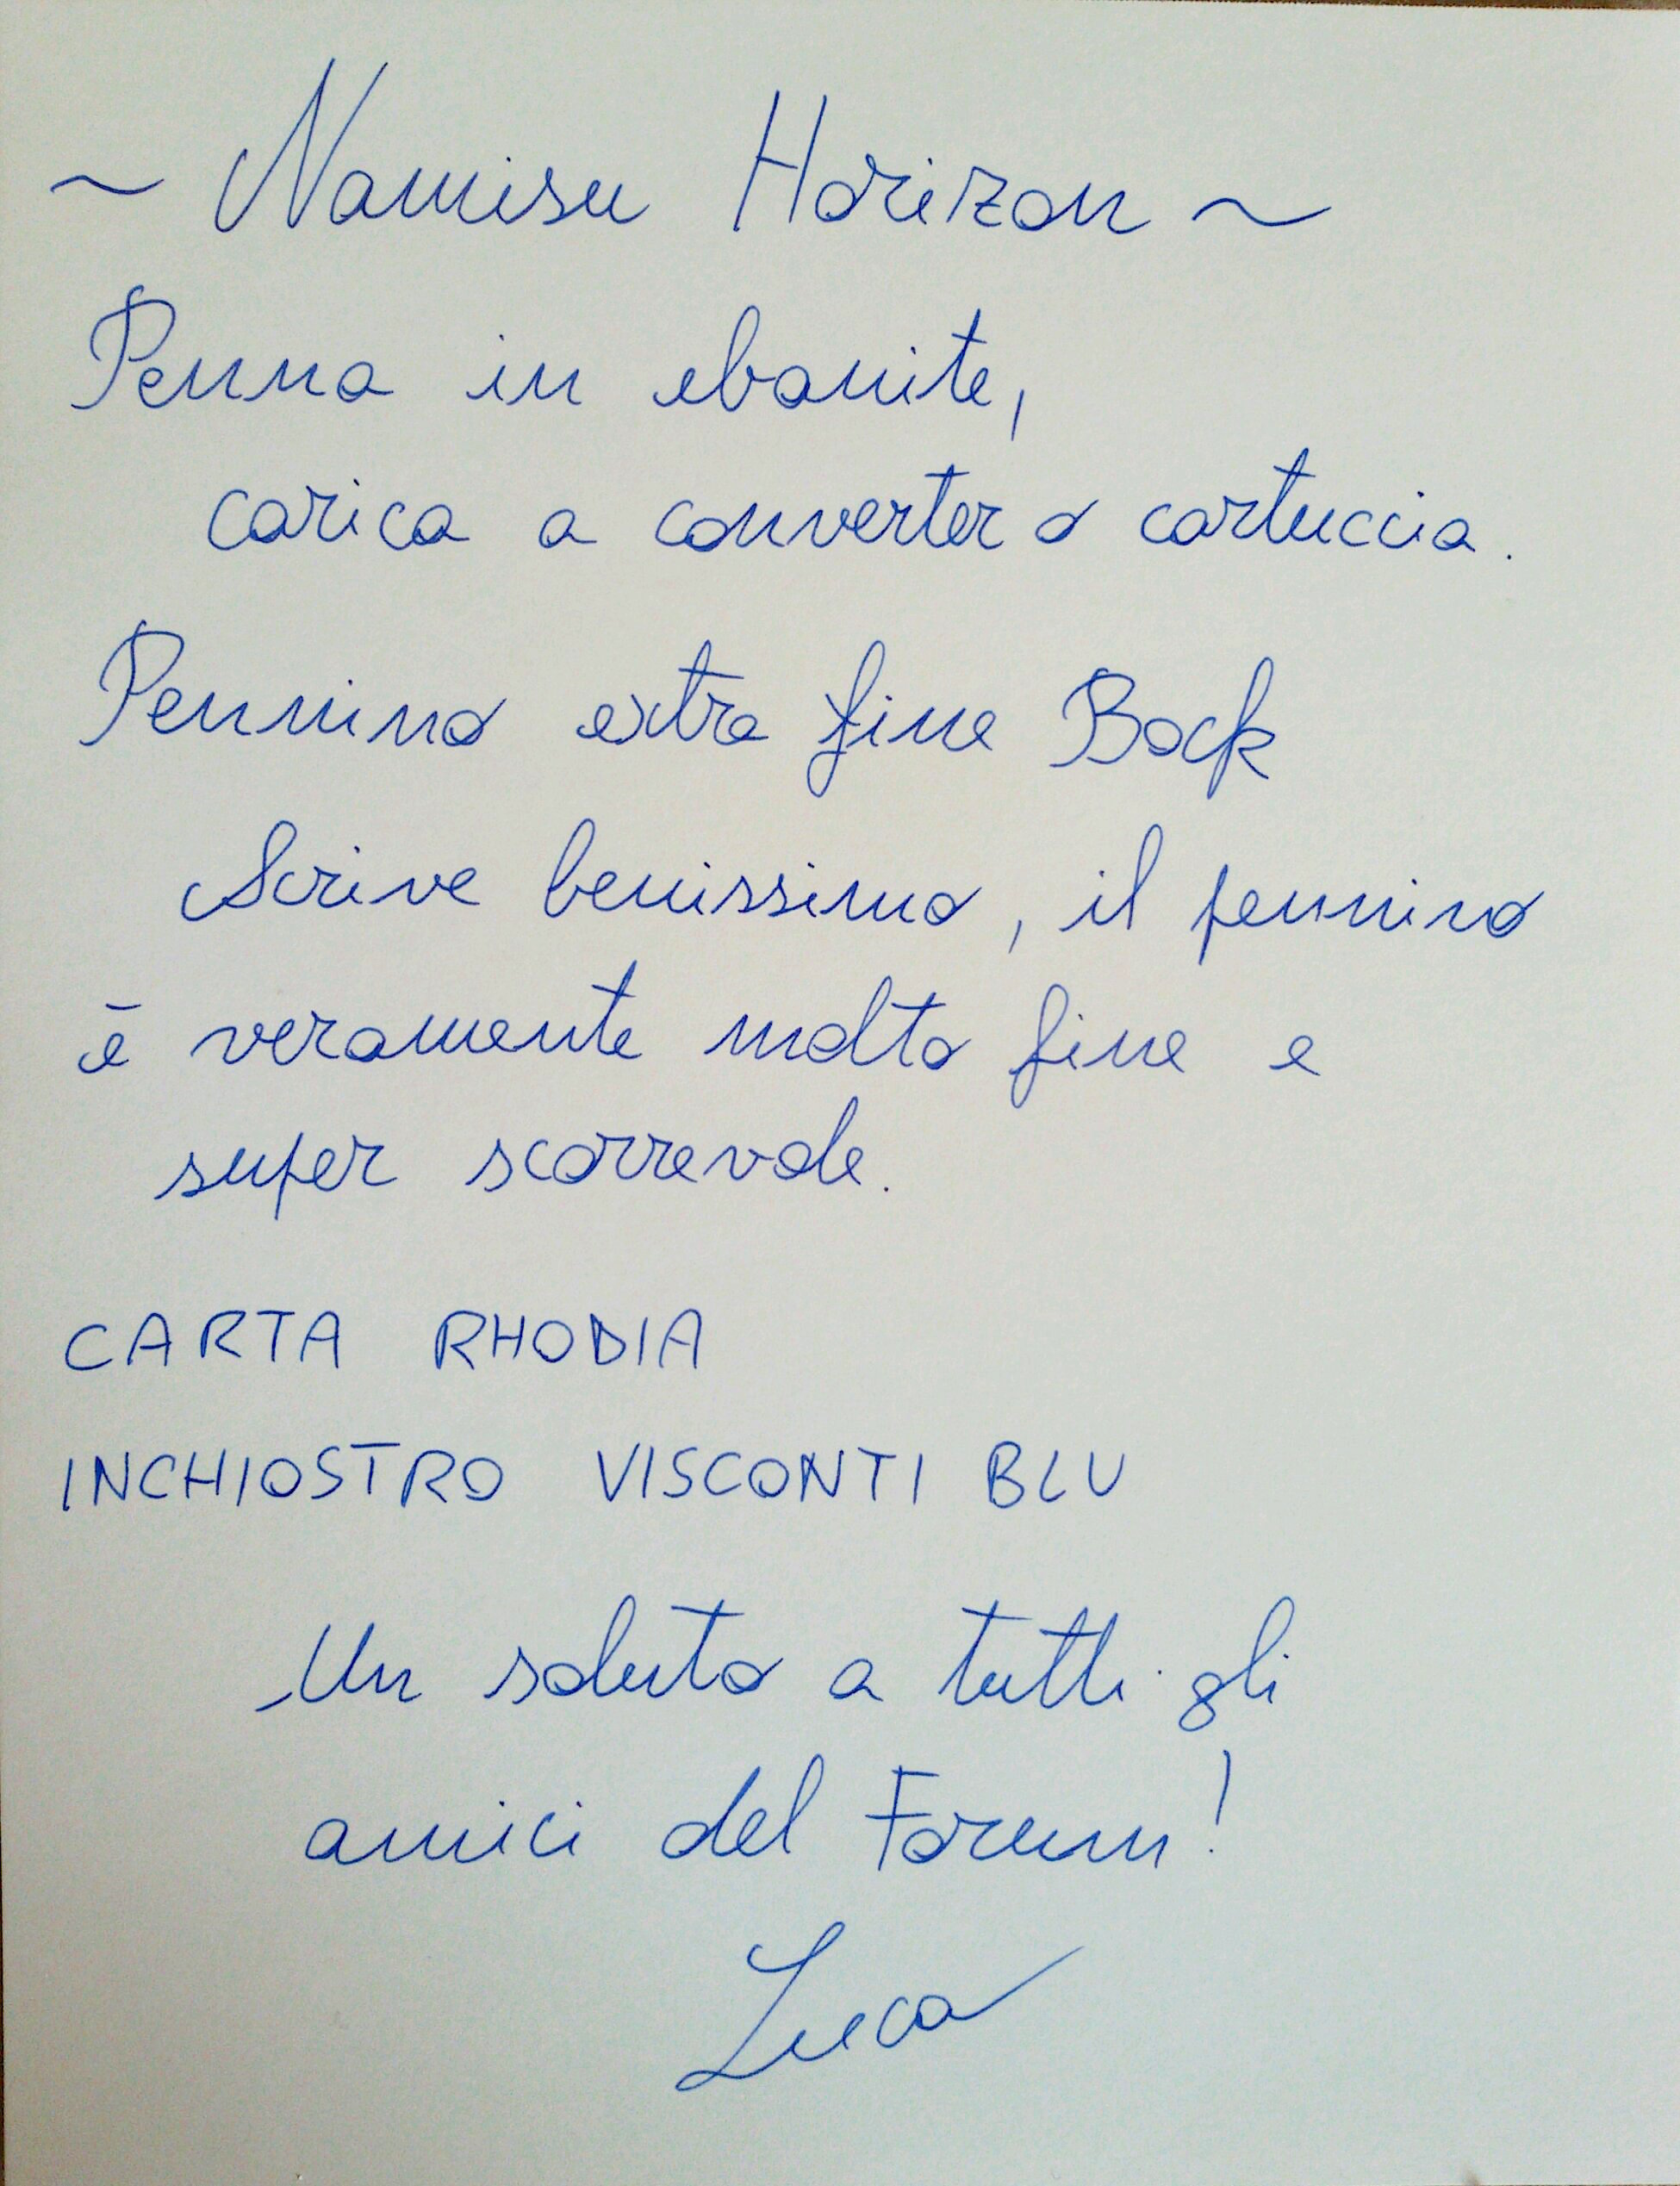 ~ Namisu Horizon ~
Penna in ebanite,
carica a converter o cartuccia.
Pennino extra fine Bock
Scrive benissimo, il pennino
è veramente molto fine e
super scorrevole.
CARTA RHODIA
INCHIOSTRO VISCONTI BLU
Un saluto a tutti gli
amici del Forum!
Luca